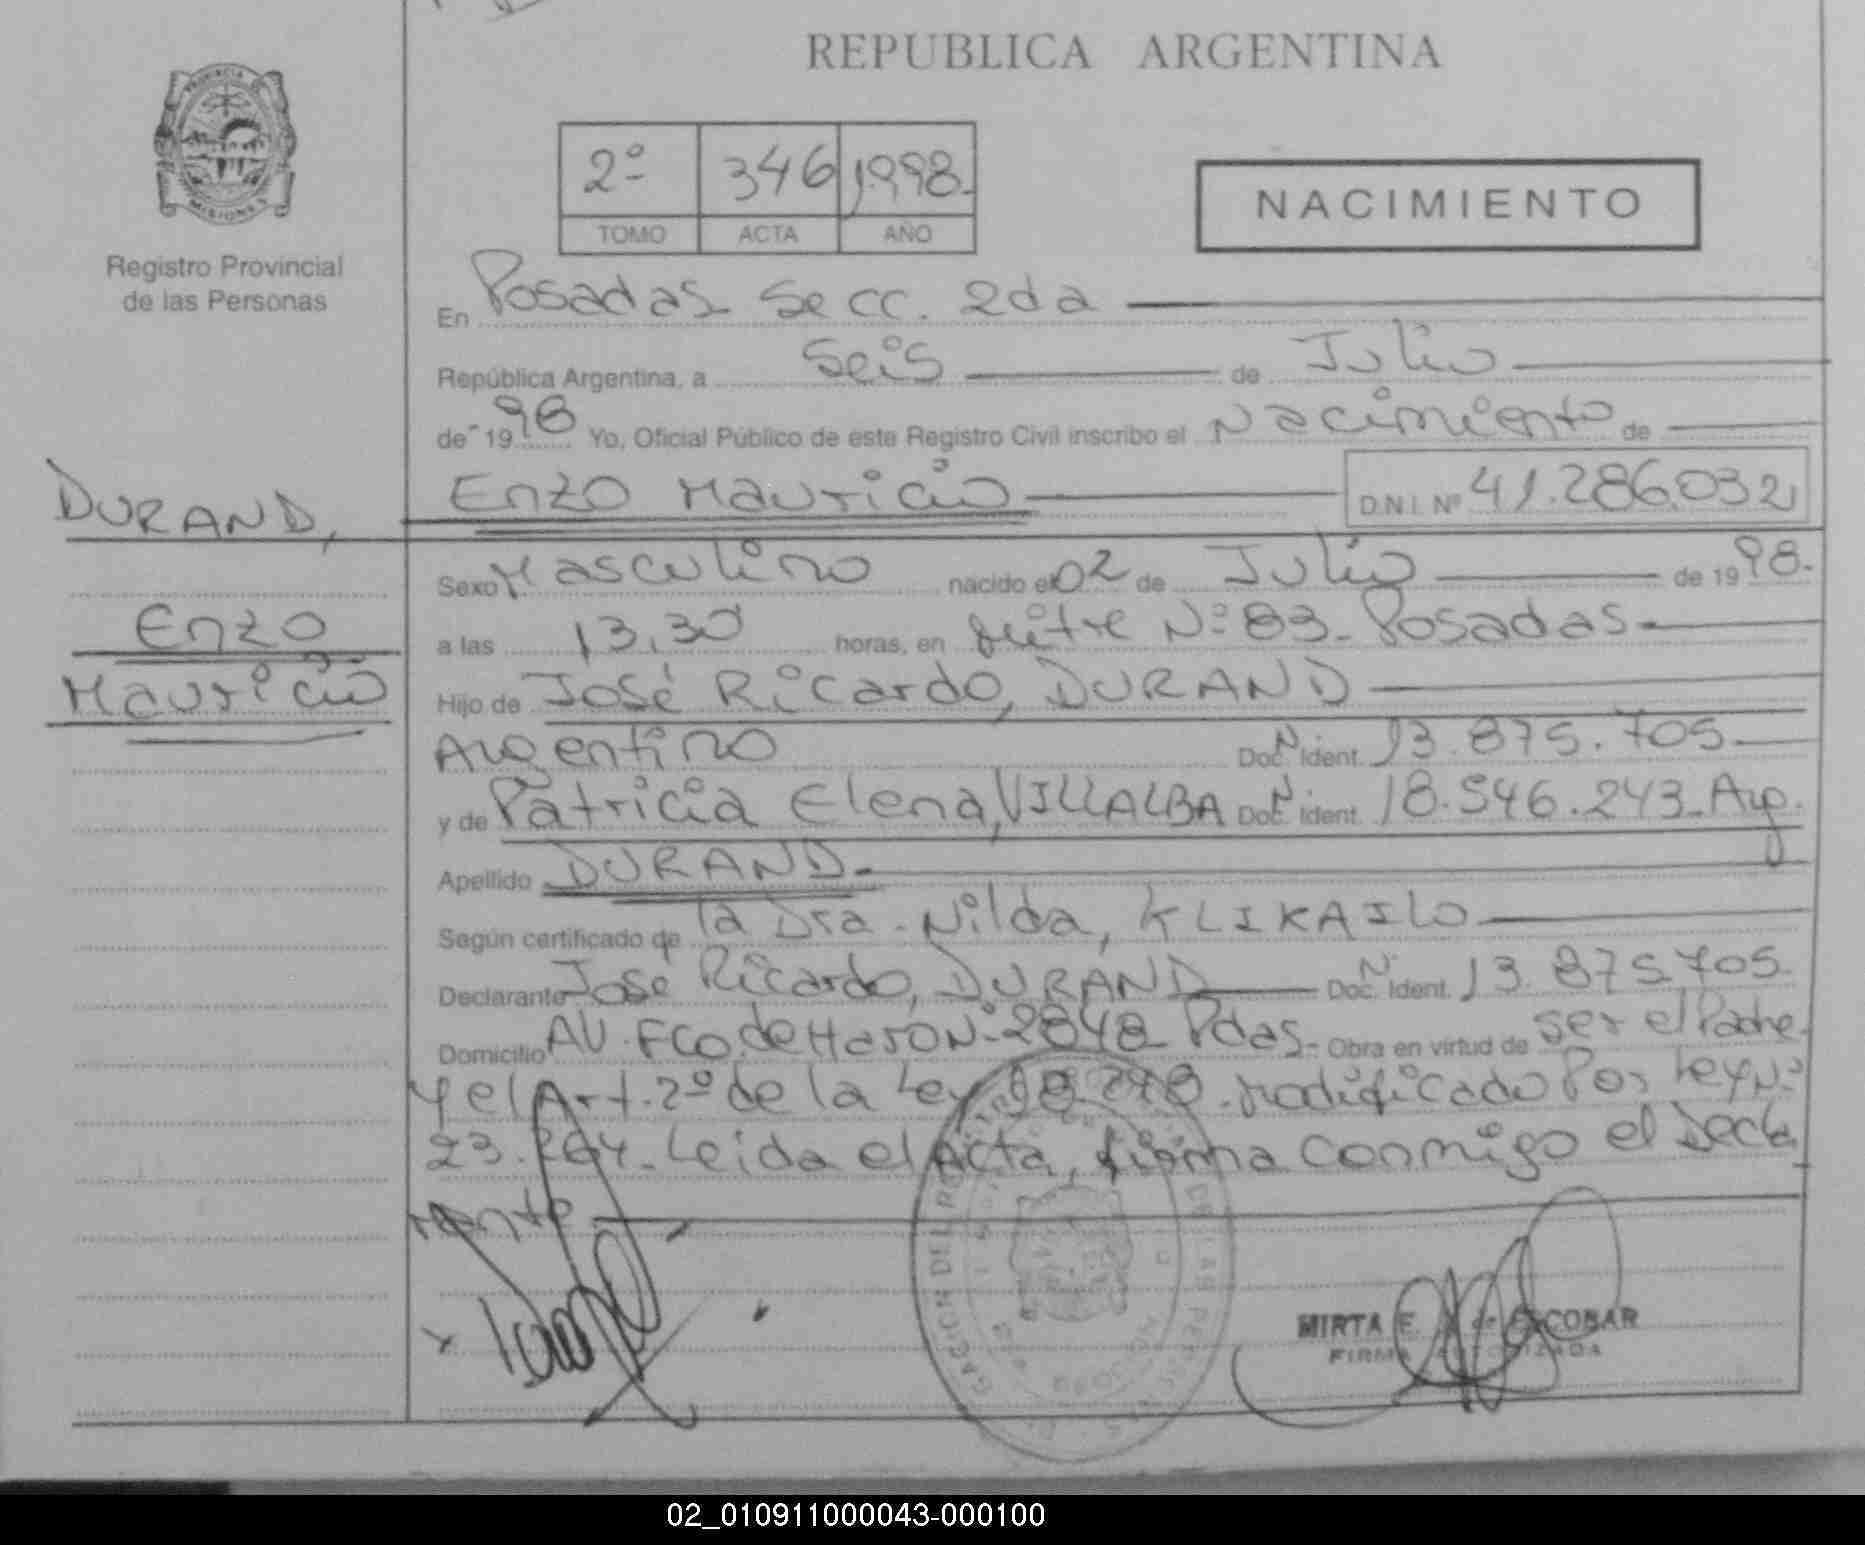 REPUBLICA ARGENTINA
PROVINCIA DE
MISIONES
Registro Provincial
de las Personas
2º 346 1998.
TOMO ACTA AÑO
NACIMIENTO
En Posadas Secc. 2da
República Argentina, a Seis de Julio
de 1998 Yo, Oficial Público de este Registro Civil inscribo el Nacimiento de
DURAND, Enzo Mauricio D.N.I. Nº 41.286.032
Sexo Masculino nacido el 02 de Julio de 1998.
Enzo
a las 13,30 horas, en Mitre Nº 83. Posadas
Mauricio
Hijo de José Ricardo, DURAND
Argentino Doc. N. Ident. 13.875.705
y de Patricia Elena, VILLALBA Doc. N. Ident. 18.546.243. Arg.
Apellido DURAND.
Según certificado de la Dra. Nilda, KLIKAILO
Declarante José Ricardo, DURAND Doc. N. Ident. 13.875.705.
Domicilio AV. Fco. de Haro Nº 2848 Pdas. Obra en virtud de ser el Padre
y el Art. 2º de la Ley modificado Por Ley Nº
23.264. Leida el Acta, firma conmigo el Decla
rante
MIRTA E. de ESCOBAR
FIRMA AUTORIZADA
02_010911000043-000100